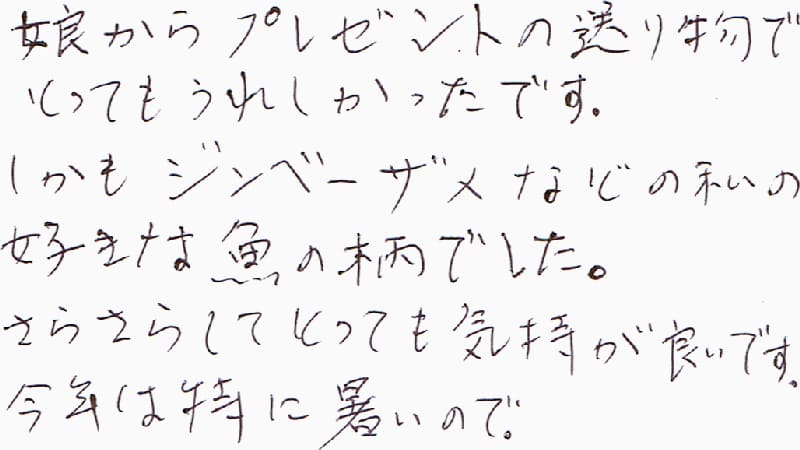 娘からプレゼントの送り物で
とってもうれしかったです.
しかもジンベーザメなどの私の
好きな魚の柄でした。
さらさらしてとっても気持が良いです.
今年は特に暑いので。